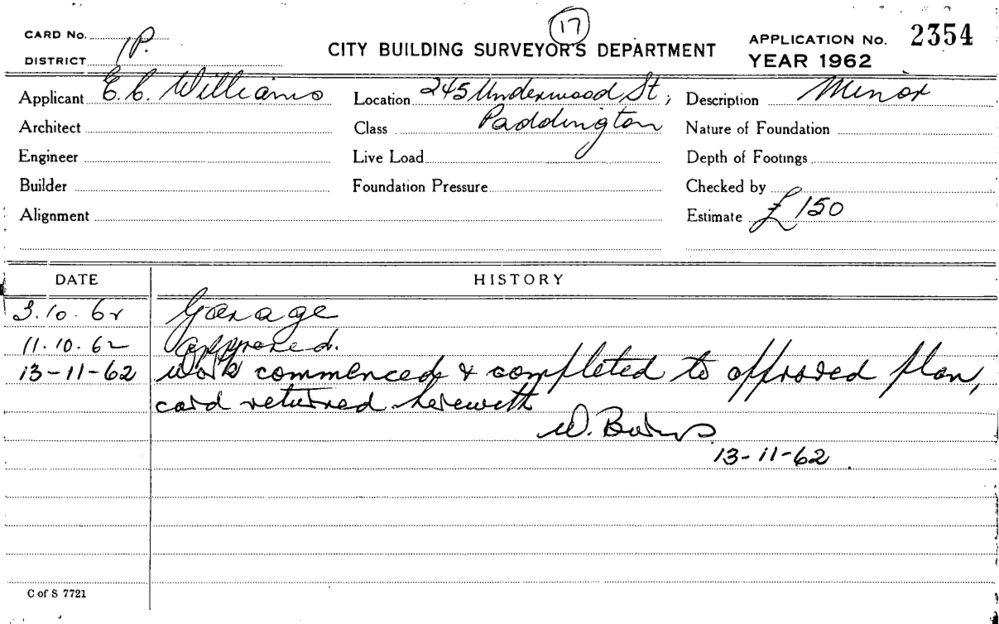 17
CARD No.
CITY BUILDING SURVEYOR'S DEPARTMENT
APPLICATION No. 2354
DISTRICT 1P.
YEAR 1962
Applicant E.C. Williams
Location 245 Underwood St,
Description Minor
Architect
Class Paddington
Nature of Foundation
Engineer
Live Load
Depth of Footings
Builder
Foundation Pressure
Checked by
Alignment
Estimate £150
DATE HISTORY
3.10.62 Garage
11.10.62 approved.
13-11-62 Work commenced & completed to approved plan,
card returned herewith
W.
13-11-62
C of S 7721